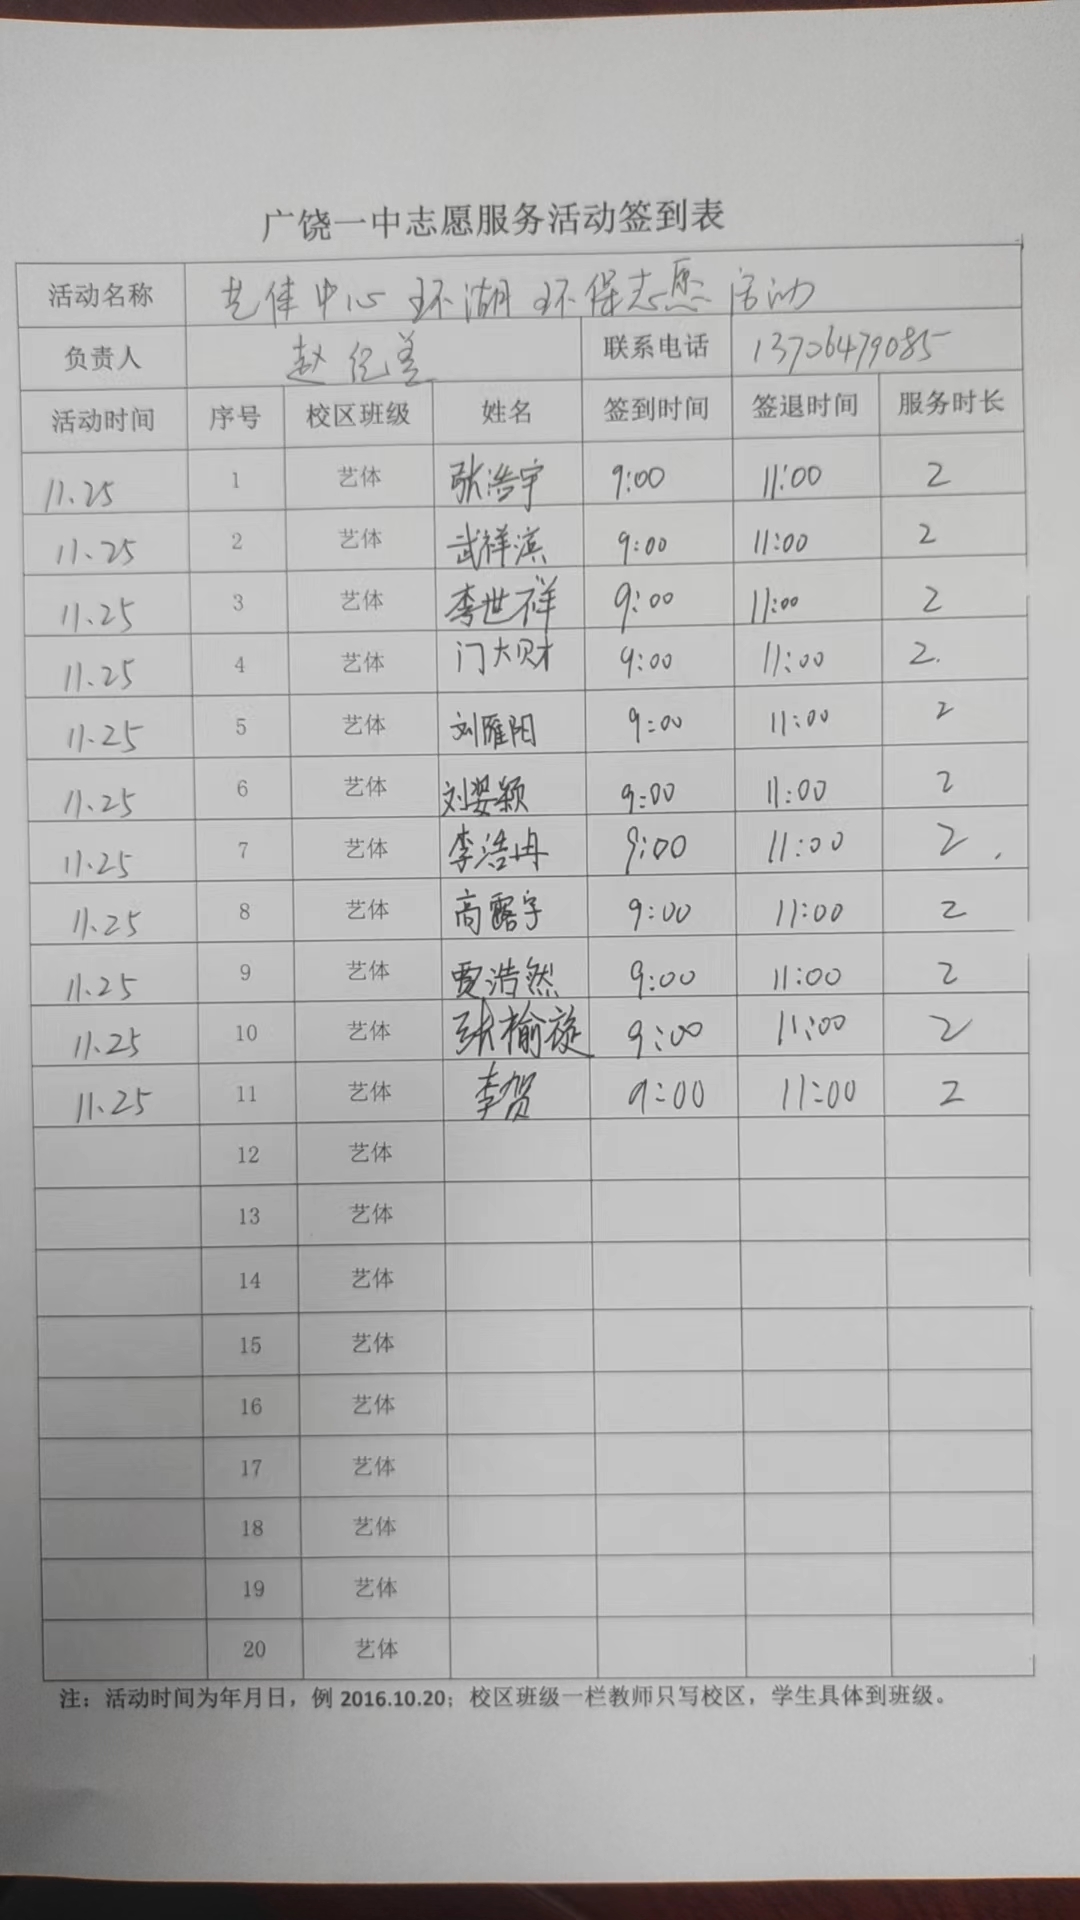 广饶一中志愿服务活动签到表
活动名称 艺体中心环湖环保志愿活动
负责人 赵纪美 联系电话 13706479085
活动时间 序号 校区班级 姓名 签到时间 签退时间 服务时长
11.25 1 艺体 张浩宇 9:00 11:00 2
11.25 2 艺体 武祥滨 9:00 11:00 2
11.25 3 艺体 李世祥 9:00 11:00 2
11.25 4 艺体 门大财 9:00 11:00 2.
11.25 5 艺体 刘雁阳 9:00 11:00 2
11.25 6 艺体 刘姿颖 9:00 11:00 2
11.25 7 艺体 李浩冉 9:00 11:00 2
11.25 8 艺体 高露宇 9:00 11:00 2
11.25 9 艺体 贾浩然 9:00 11:00 2
11.25 10 艺体 张榆旋 9:00 11:00 2
11.25 11 艺体 李贺 9:00 11:00 2
12 艺体
13 艺体
14 艺体
15 艺体
16 艺体
17 艺体
18 艺体
19 艺体
20 艺体
注：活动时间为年月日，例 2016.10.20；校区班级一栏教师只写校区，学生具体到班级。